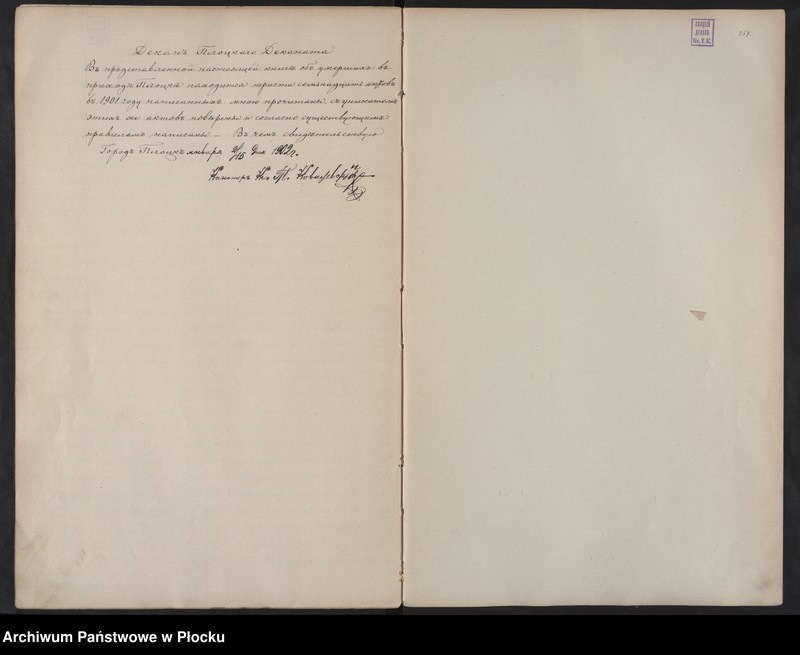 Деканъ Плоцкаго Деканата
Въ представленной настоящей книгѣ объ умершихъ въ
приходѣ Плоцкѣ находится триста семьнадцать актовъ
въ 1901 году написанныхъ, мною прочитаны, съ
этихъ же актовъ повѣрены и согласно существующимъ
правиламъ написаны — Въ чемъ свидѣтельствую
Городъ Плоцкъ января 2/15 дня 1902 г.
Каноникъ Кс.
Archiwum Państwowe w Płocku